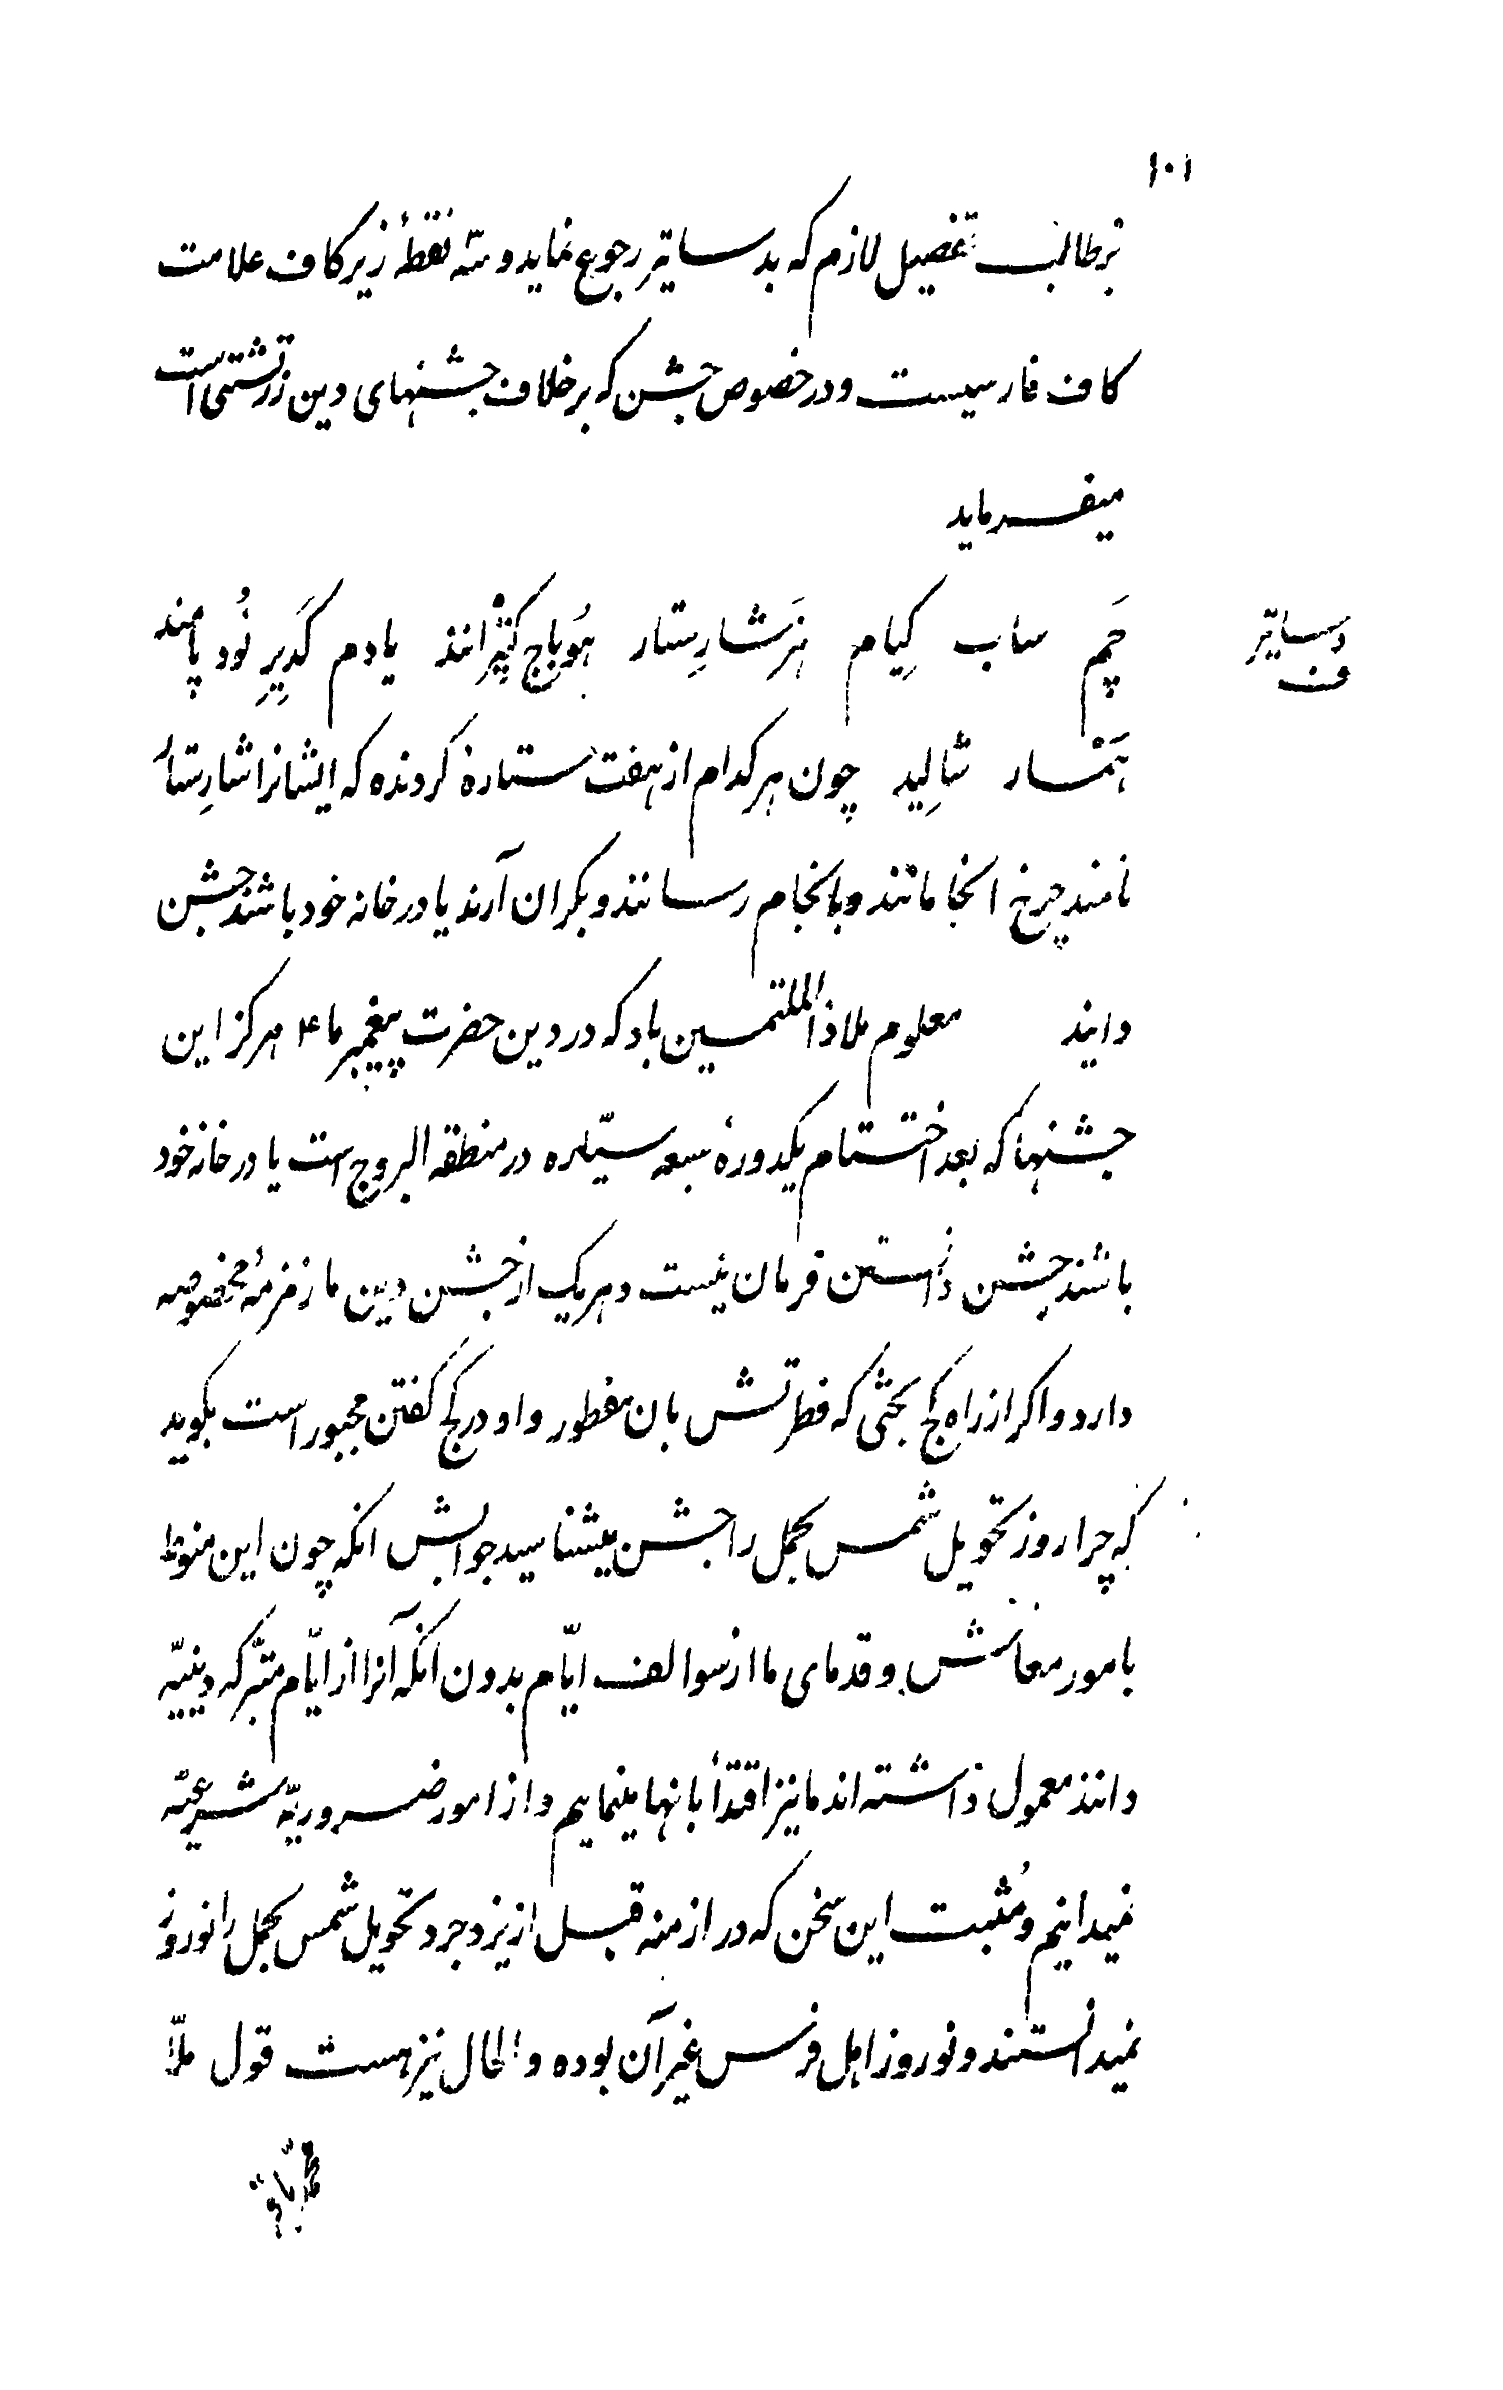 ۱۰۱
بر طالب تفصیل لازم که بدساتیر رجوع نماید و سه نقطهٔ زیر کاف علامت
کاف فارسیست و در خصوص جشن که بر خلاف جشنهای دین زرتشتی است
میفرماید
چَم ساب کِیام هَرشارِستار هُوباج یادم گَدیرِ نُود پامند
دساتیر
ف
هَمسار شالِید چون هر کدام از هفت ستاره کردنده که ایشانرا شارِستار
نامند چرخ انجامانند و بانجام رسانند و بکران آرند یا در خانه خود باشند جشن
دانید معلوم ملاذ الملتمسین باد که در دین حضرت پیغمبر ما ۴ هرکز این
جشنها که بعد اختتام یکدورهٔ سبعه سیّاره در منطقه البروج است یا در خانه خود
باشند جشن دانستن فرمان نیست و هر یک از جشن دین ما زمزمهٔ مخصوصه
دارد و اکر از راه کج بحثی که فطرتش بان مفطور و او در کج کفتن مجبور است بکوید
که چرا روز تحویل شمس بحمل را جشن میشناسید جوابش انکه چون این منوط
بامور معاش و قدمای ما از سوالف ایّام بدون انکه آنرا از ایّام متبرّکه دینیّه
دانند معمول داشته اند ما نیز اقتدأ بانها مینماییم و از امور ضروریّه شرعیّه
نمیدانیم و مُثبت این سخن که در ازمنه قبل از یزدجرد تحویل شمس بحمل را نوروز
نمیدانستند و نوروز اهل فرس غیر آن بوده و الحال نیز هست قول ملّا
محمد باقر